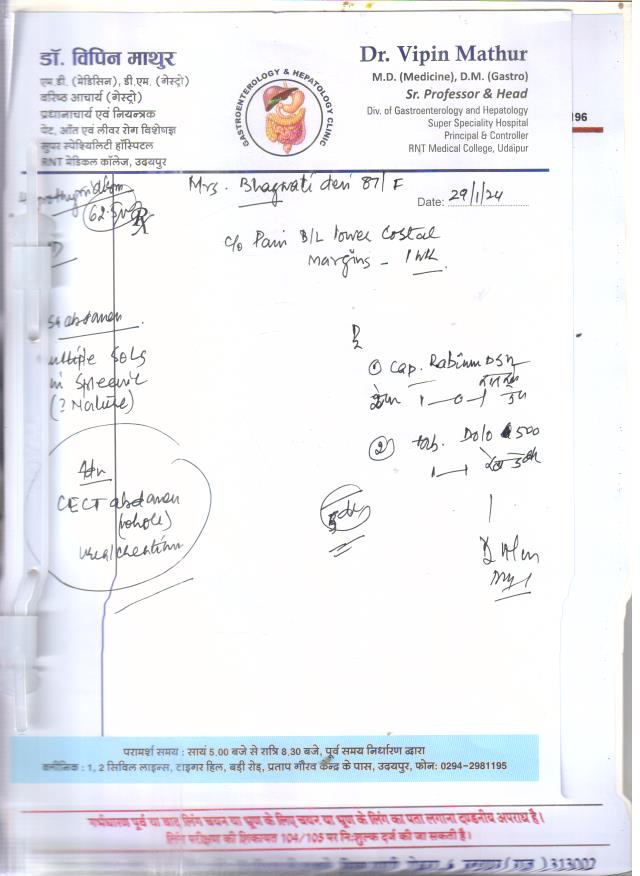 डॉ. विपिन माथुर
एम.डी. (मेडिसिन), डी.एम. (गेस्ट्रो)
वरिष्ठ आचार्य (गेस्ट्रो)
प्रधानाचार्य एवं नियन्त्रक
पेट, आँत एवं लीवर रोग विशेषज्ञ
सुपर स्पेश्यिलिटी हॉस्पिटल
RNT मेडिकल कॉलेज, उदयपुर
GASTROENTEROLOGY & HEPATOLOGY CLINIC
Dr. Vipin Mathur
M.D. (Medicine), D.M. (Gastro)
Sr. Professor & Head
Div. of Gastroenterology and Hepatology
Super Speciality Hospital
Principal & Controller
RNT Medical College, Udaipur
96
Mrs. Bhagwati devi 87/F
Date: 29/1/24
62.5
c/o Pain B/L lower costal
margins - 1 wk
abdomen
multiple SOLs
in Spleen
(? Nature)
Adv
CECT abdomen
(whole)
① Cap. Rabium DSR
1-0-1
② tab. Dolo 500
1-1
परामर्श समय : सायं 5.00 बजे से रात्रि 8.30 बजे, पूर्व समय निर्धारण द्वारा
क्लीनिक : 1, 2 सिविल लाइन्स, टाइगर हिल, बड़ी रोड़, प्रताप गौरव केन्द्र के पास, उदयपुर, फोन: 0294-2981195
गर्भधारण पूर्व या बाद लिंग चयन या भ्रूण के लिए चयन या भ्रूण के लिंग का पता लगाना दण्डनीय अपराध है।
लिंग परीक्षण की शिकायत 104/105 पर निःशुल्क दर्ज की जा सकती है।
313002